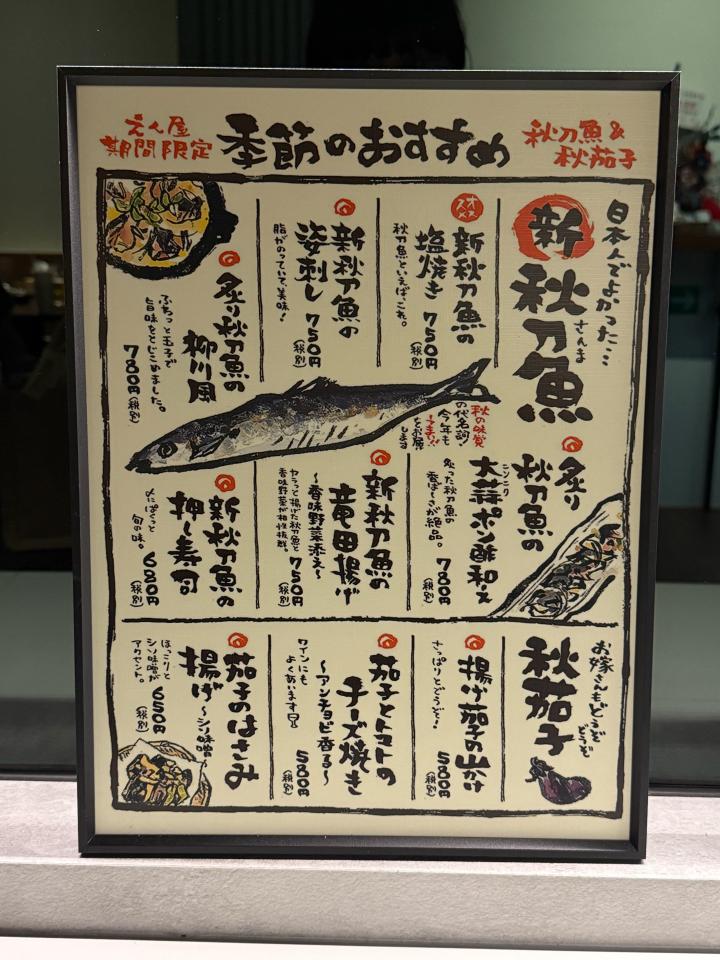 えん屋
期間限定
季節のおすすめ
秋刀魚&
秋茄子
日本人でよかった…
新
秋刀魚
さんま
オススメ
新秋刀魚の
塩焼き
750円
(税別)
秋刀魚といえばこれ。
新秋刀魚の
姿刺し
750円
(税別)
脂がのっていて、美味!
炙り秋刀魚の
柳川風
ふわっと玉子で
旨味をとじこめました。
780円
(税別)
秋の味覚
の代名詞!
今年も
うまい!!
をお届
します
炙り
秋刀魚の
大蒜ポン酢和え
ニンニク
炙った秋刀魚の
香ばしさが絶品。
780円
(税別)
新秋刀魚の
竜田揚げ
~香味野菜添え~
カラッと揚げた秋刀魚と
香味野菜が相性抜群。
750円
(税別)
新秋刀魚の
押し寿司
〆にぱくっと
旬の味。
680円
(税別)
お嫁さんもどうぞ
どうぞ
秋茄子
揚げ茄子の山かけ
さっぱりとどうぞ!
580円
(税別)
茄子とトマトの
チーズ焼き
~アンチョビ香る~
ワインにも
よくあいます
580円
(税別)
茄子のはさみ
揚げ~シソ味噌~
ほっこりと
シソ味噌が
アクセント。
650円
(税別)